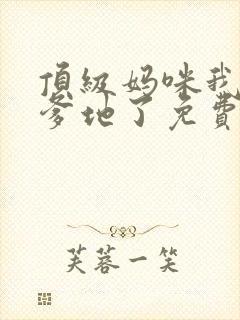 頂級妈咪我
爹地了免費
芙蓉一笑